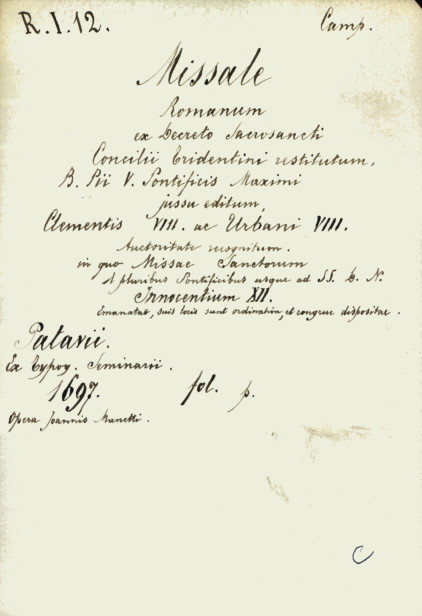 R. I. 12. Camp.
Missale
Romanum
ex Decreto Sacrosancti
Concilii Tridentini restitutum,
B. Pii V. Pontificis Maximi
jussu editum,
Clementis VIII. ac Urbani VIII.
Auctoritate recognitum.
in quo Missae Sanctorum
A pluribus Pontificibus usque ad SS. D. N.
Innocentium XII.
Emanatae, suis locis sunt ordinatim, et congrue dispositae.
Patavii.
Ex Typog. Seminarii.
1697. fol. p.
Opera Joannis Manetti.
C